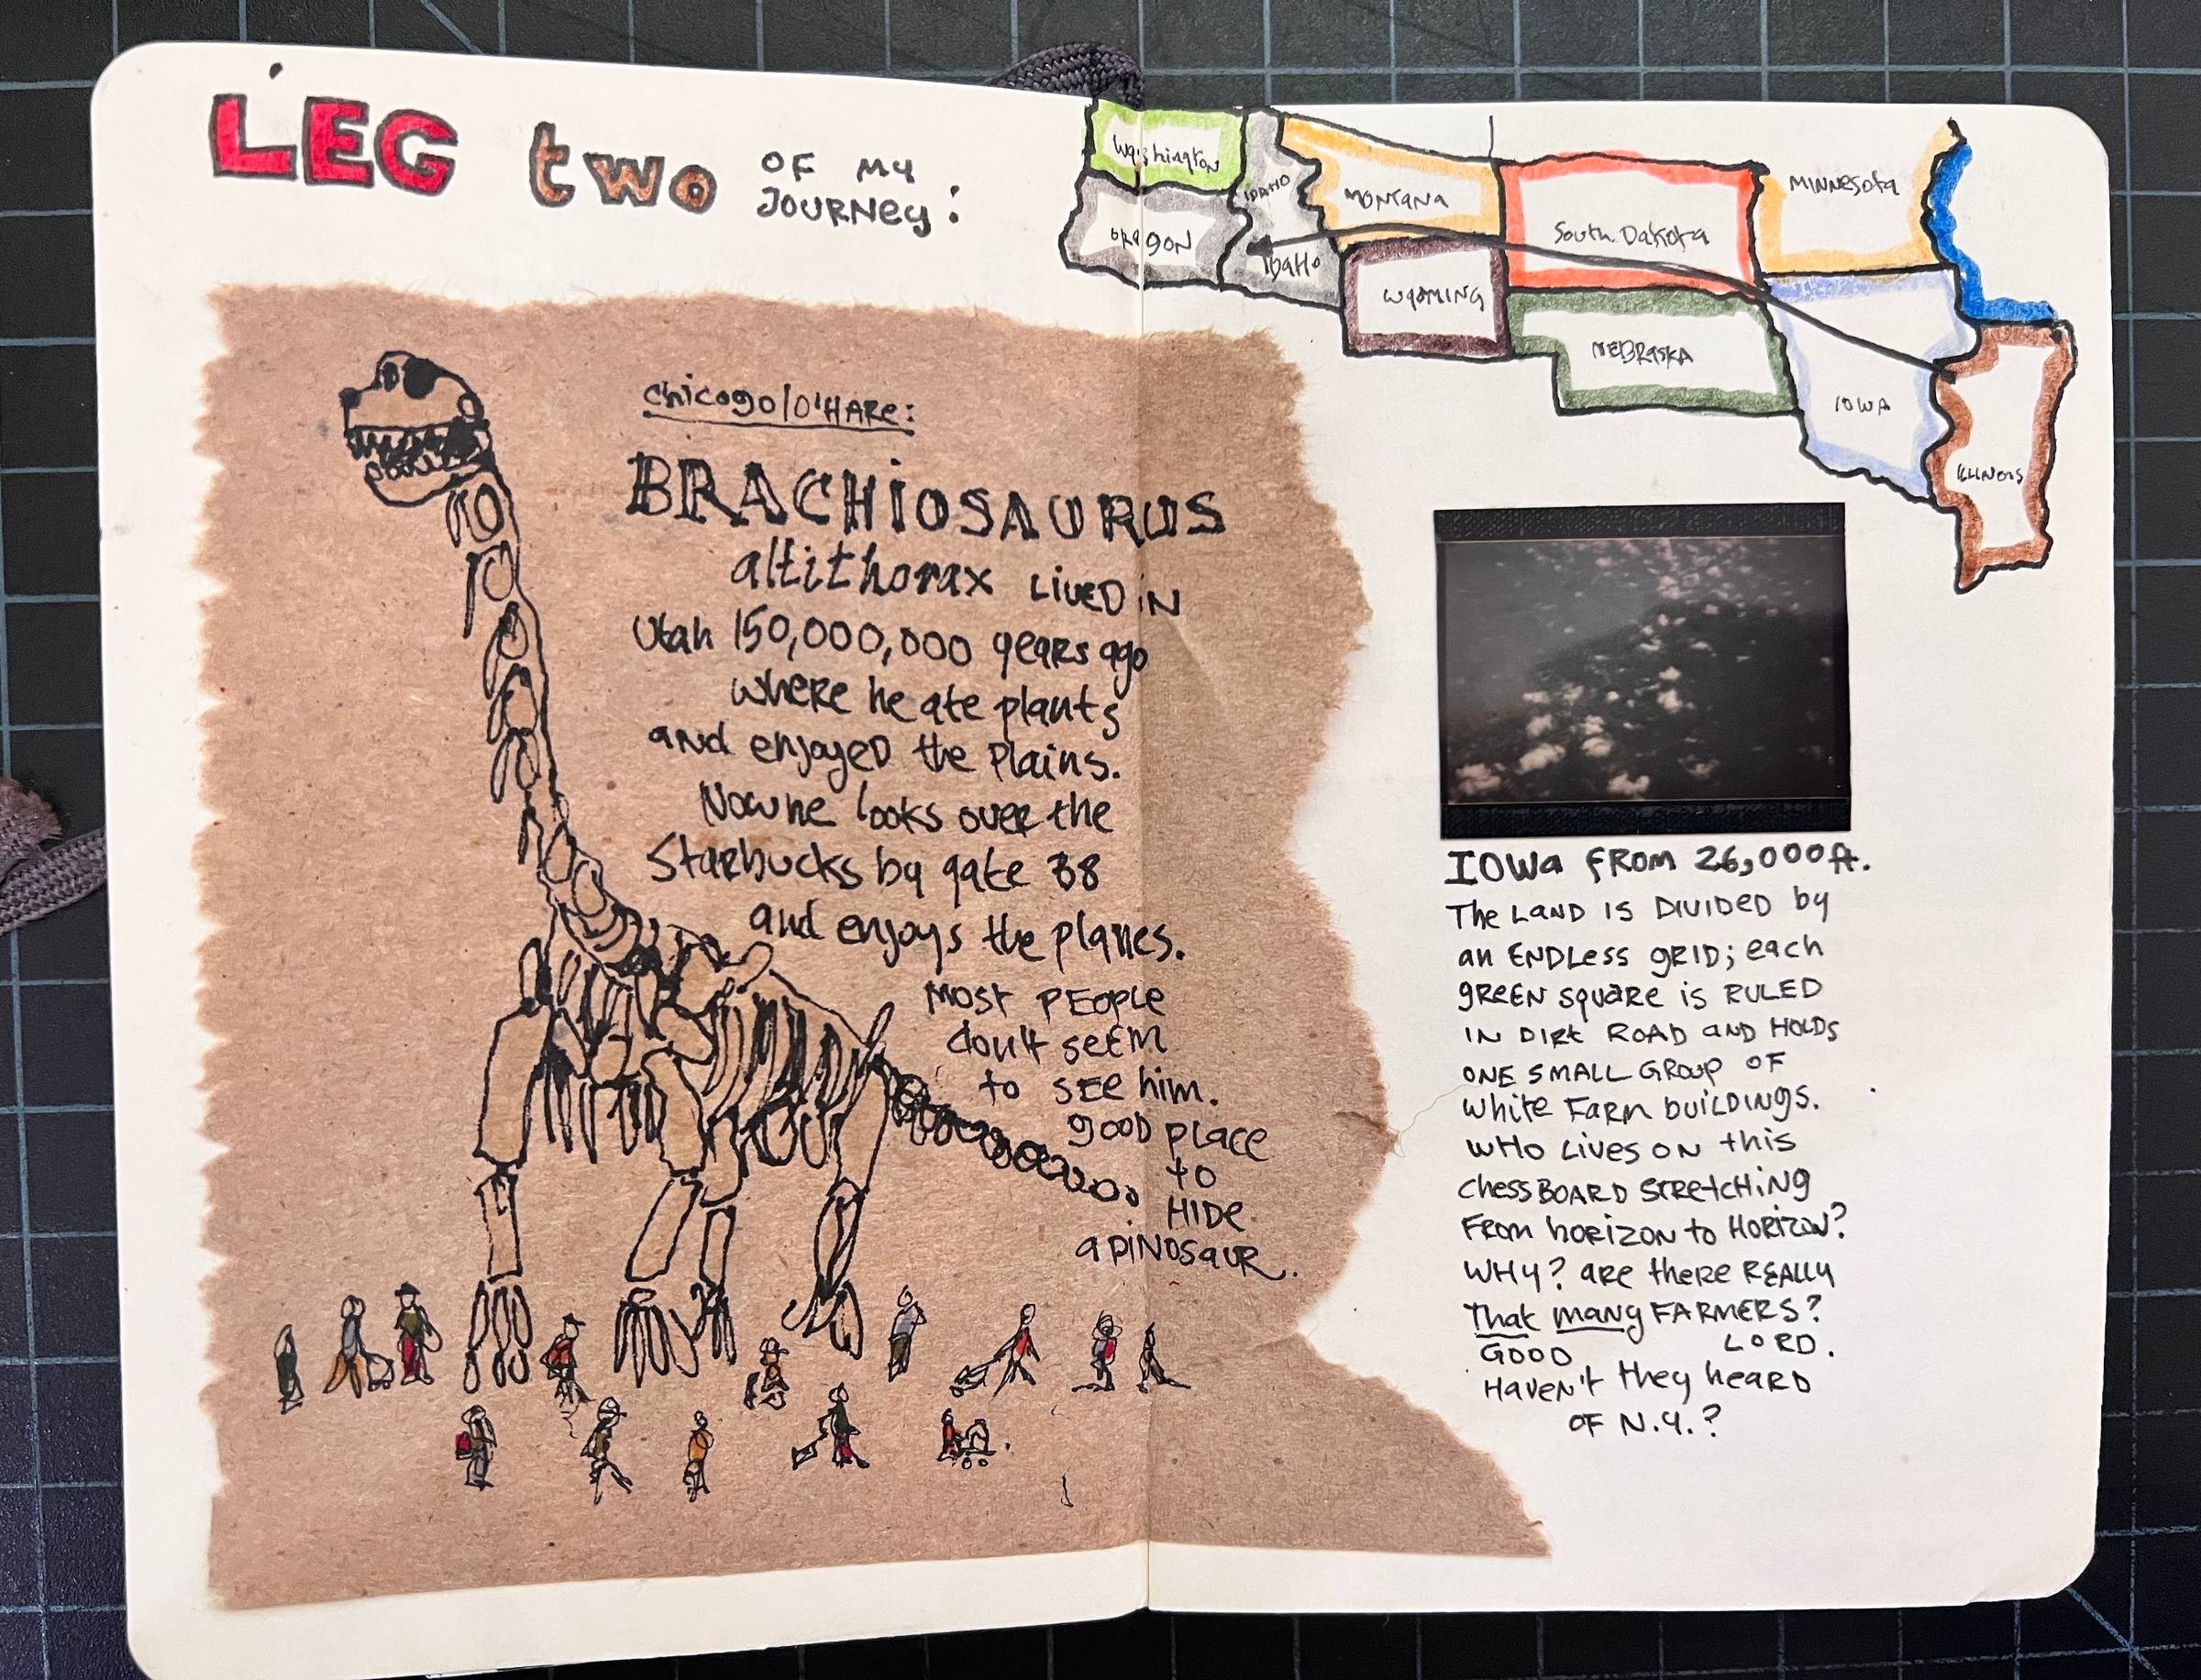 LEG two OF MY
JOURNEY:
Washington
IDAHO
MONTANA
SOUTH DAKOTA
MINNESOTA
OREGON
IDAHO
WYOMING
NEBRASKA
IOWA
ILLINOIS
Chicago/O'HARE:
BRACHIOSAURUS
altithorax LIVED IN
Utah 150,000,000 years ago
where he ate plants
and enjoyed the Plains.
Now he looks over the
Starbucks by gate B8
and enjoys the planes.
MOST PEOPLE
don't seem
to see him.
good place
to
HIDE
a DINOSAUR.
IOWA FROM 26,000 ft.
The LAND IS DIVIDED by
an ENDLESS GRID; each
GREEN square is RULED
IN DIRT ROAD AND HOLDS
ONE SMALL GROUP OF
white FARM buildings.
WHO LIVES ON this
chessBOARD STRETCHING
From horizon to HORIZON?
WHY? are there REALLY
That many FARMERS?
GOOD LORD.
Haven't they heard
OF N.Y.?